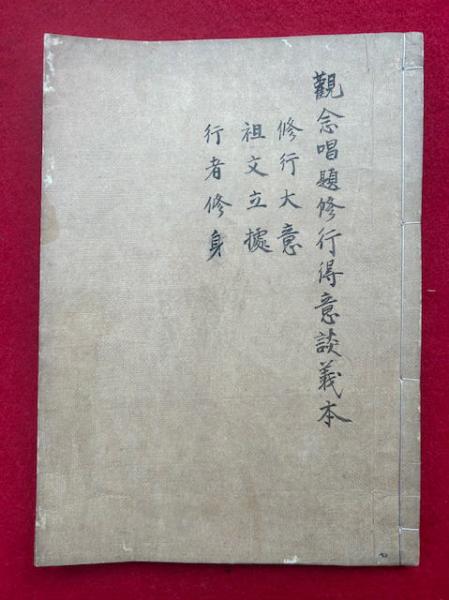 觀念唱題修行得意談義本
修行大意
祖文立據
行者修身